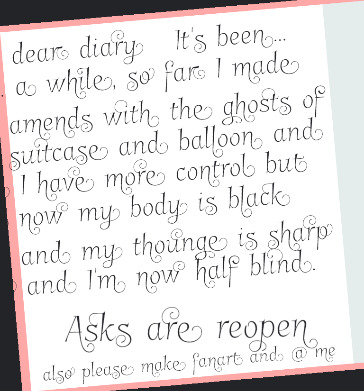 dear diary It's been...
a while, so far I made
amends with the ghosts of
suitcase and balloon and
I have more control but
now my body is black
and my thounge is sharp
and I'm now half blind.
Asks are reopen
also please make fanart and @ me